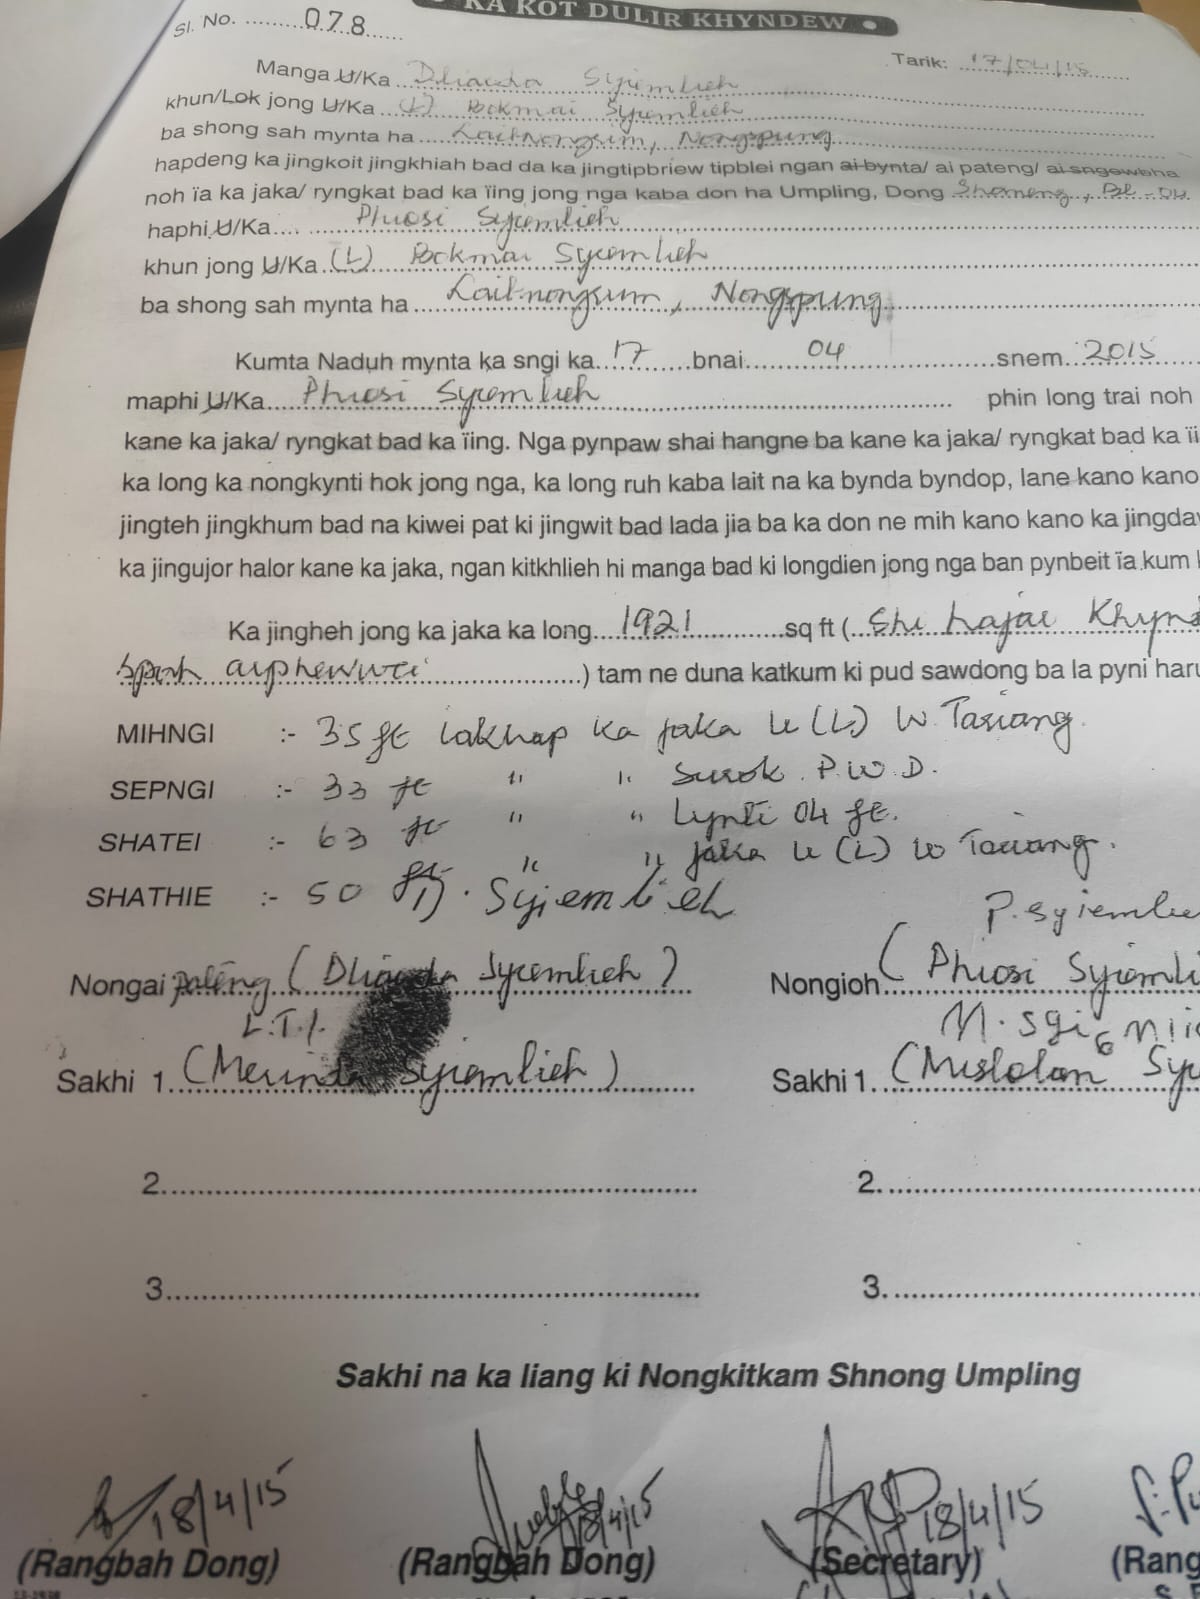 KA KOT DULIR KHYNDEW
Sl. No. 078
Tarik: 17/04/15
Manga U/Ka Dlianda Syiemlieh
khun/Lok jong U/Ka (L) Bokmai Syiemlieh
ba shong sah mynta ha Laitnongsum, Nongspung
hapdeng ka jingkoit jingkhiah bad da ka jingtipbriew tipblei ngan ai bynta/ ai pateng/ ai sngewbha
noh ïa ka jaka/ ryngkat bad ka ïing jong nga kaba don ha Umpling, Dong
haphi U/Ka Phiosi Syiemlieh
khun jong U/Ka (L) Bokmai Syiemlieh
ba shong sah mynta ha Laitnongsum, Nongspung
Kumta Naduh mynta ka sngi ka 17 bnai 04 snem 2015
maphi U/Ka Phiosi Syiemlieh phin long trai noh
kane ka jaka/ ryngkat bad ka ïing. Nga pynpaw shai hangne ba kane ka jaka/ ryngkat bad ka ïi
ka long ka nongkynti hok jong nga, ka long ruh kaba lait na ka bynda byndop, lane kano kano
jingteh jingkhum bad na kiwei pat ki jingwit bad lada jia ba ka don ne mih kano kano ka jingda
ka jingujor halor kane ka jaka, ngan kitkhlieh hi manga bad ki longdien jong nga ban pynbeit ïa kum
Ka jingheh jong ka jaka ka long 1921 sq ft ( Shi hajar Khynd
spah arphewwei ) tam ne duna katkum ki pud sawdong ba la pyni haru
MIHNGI :- 35 ft iakhap ka jaka u (L) W. Tariang.
SEPNGI :- 33 ft " " Surok P.W.D.
SHATEI :- 63 ft " " Lynti 04 ft.
SHATHIE :- 50 ft " " jaka u (L) W Tariang.
D. Syiemlieh P. Syiemlie
Nongai pateng (Dlianda Syiemlieh) Nongioh (Phiosi Syiemli
L.T.I.
Sakhi 1. (Merinda Syiemlieh) Sakhi 1. (Mislolan Sy
2. 2.
3. 3.
Sakhi na ka liang ki Nongkitkam Shnong Umpling
18/4/15 18/4/15 18/4/15
(Rangbah Dong) (Rangbah Dong) (Secretary) (Rang